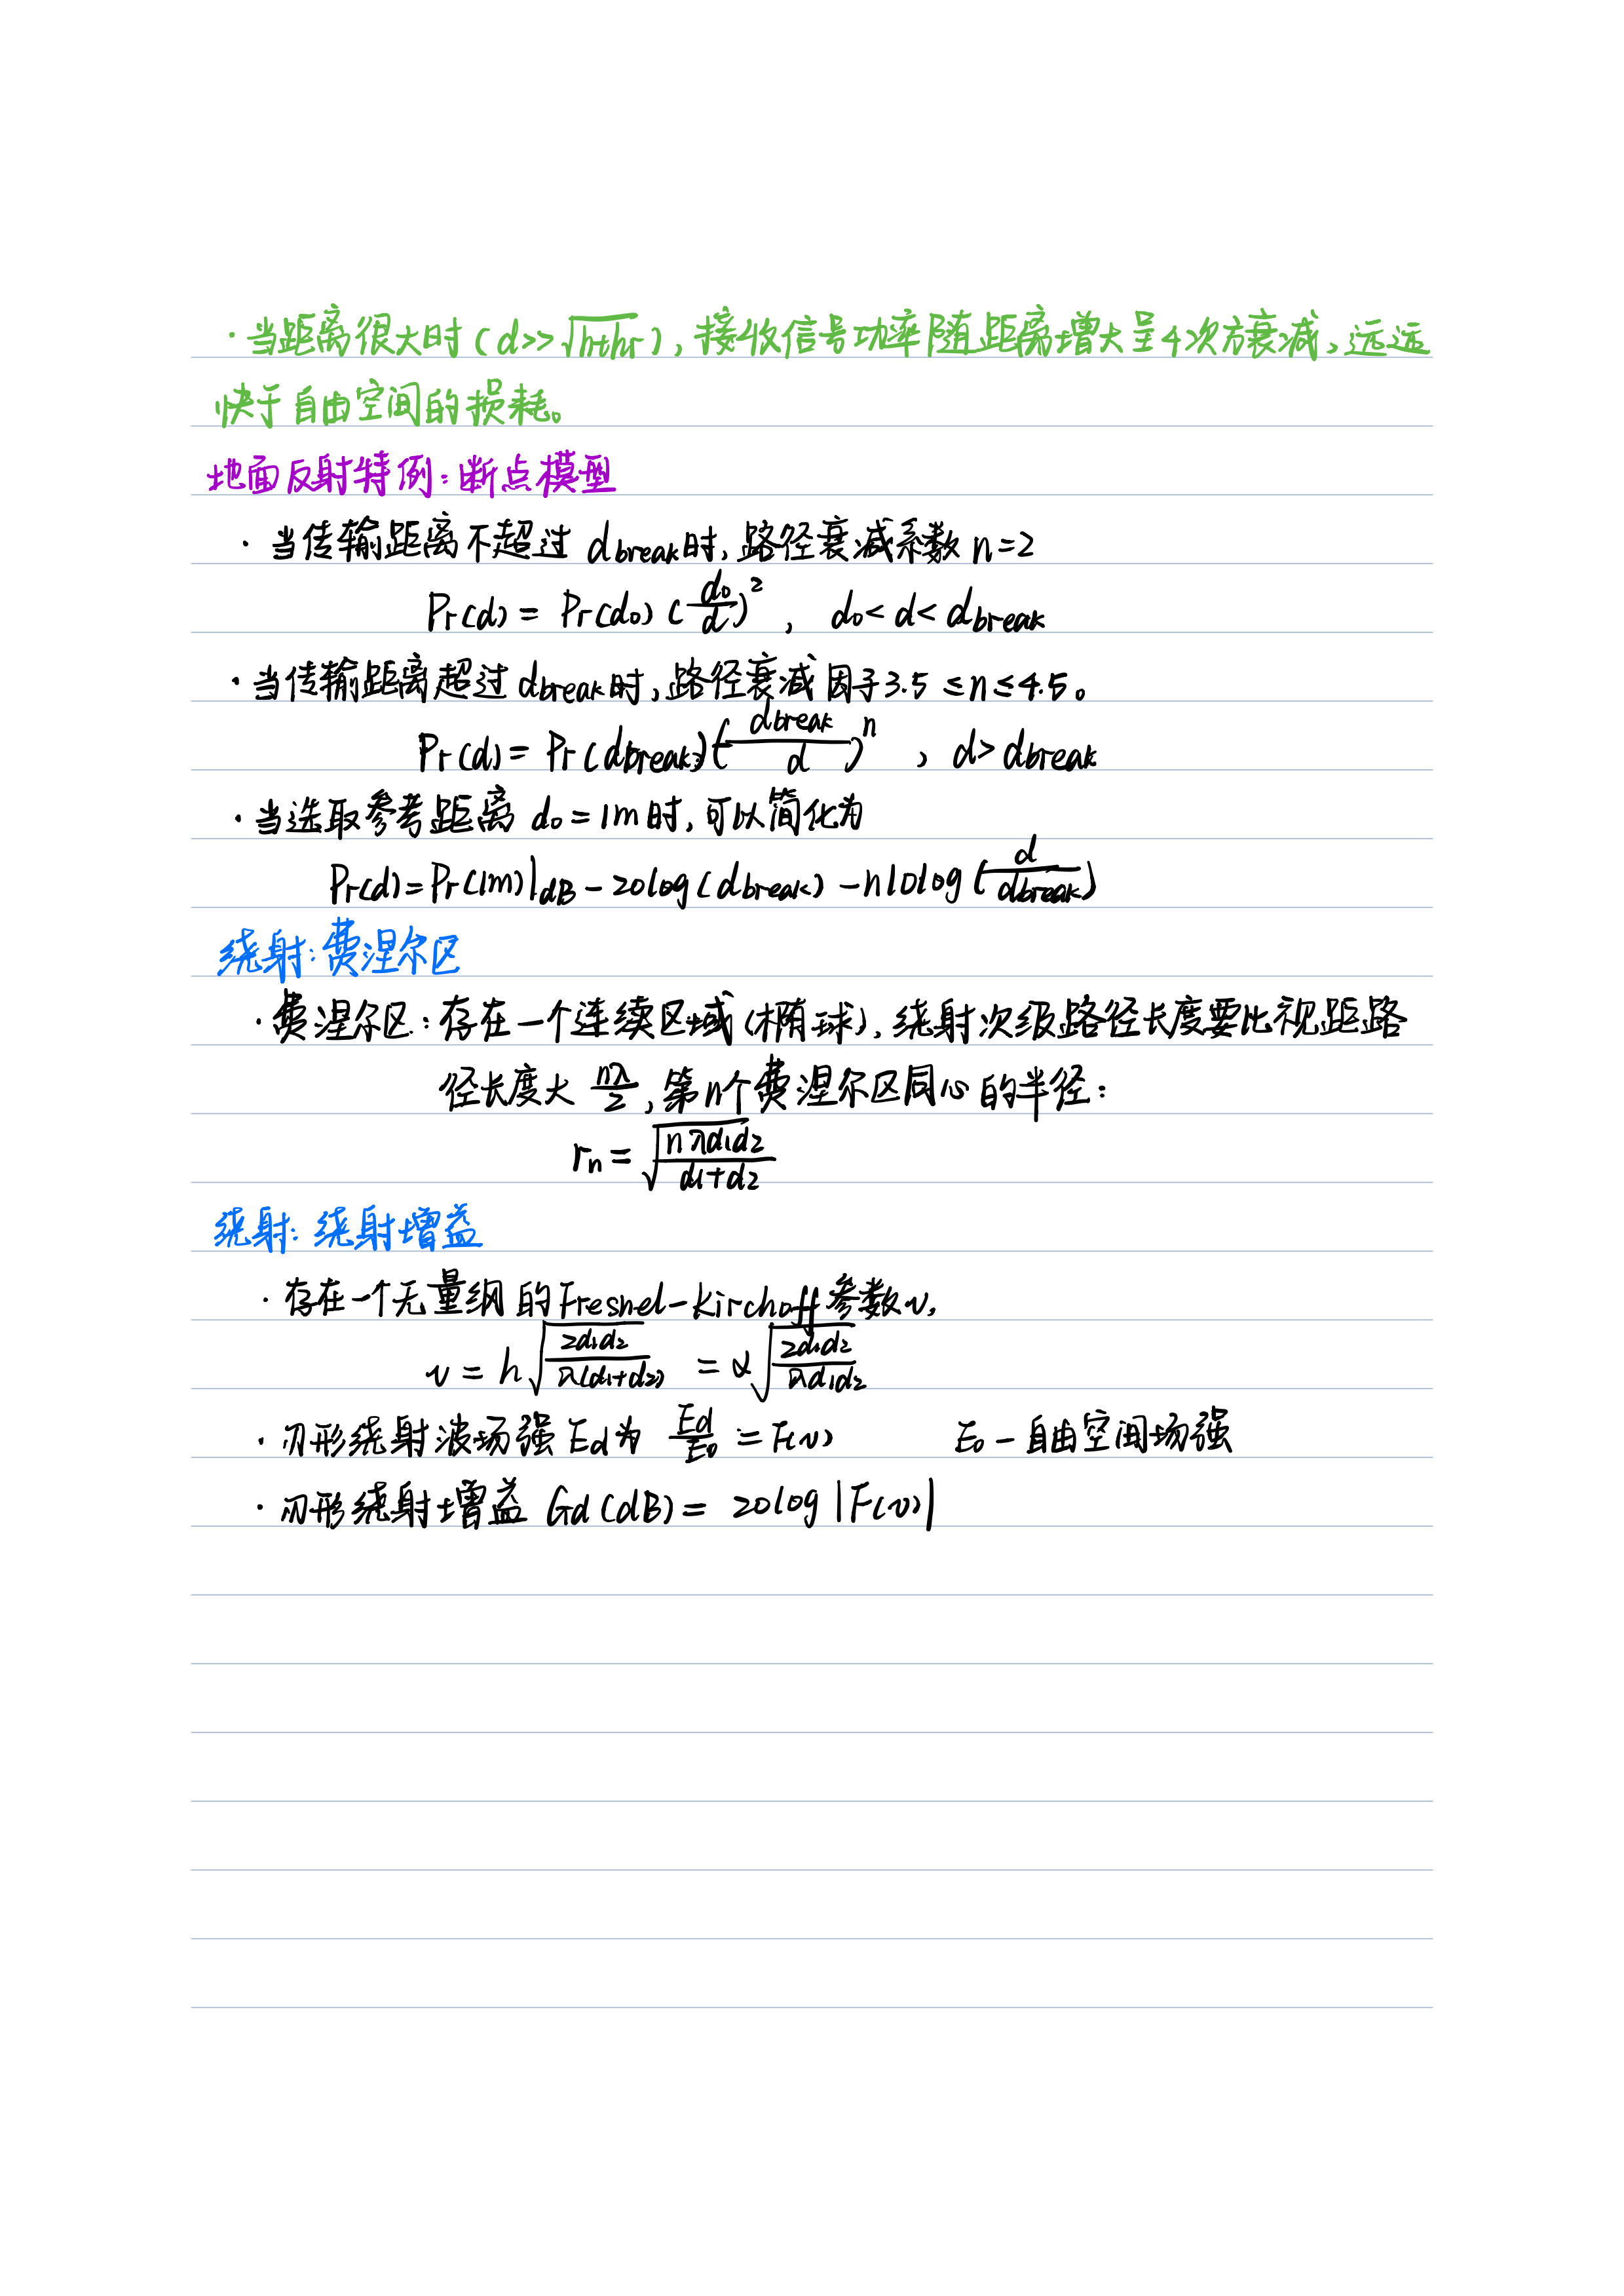 ·当距离很大时(d>>√hthr),接收信号功率随距离增大呈4次方衰减,远远
快于自由空间的损耗。
地面反射特例:断点模型
·当传输距离不超过 dbreak时,路径衰减系数 n=2
Pr(d) = Pr(d₀) (d₀/d)², d₀< d< dbreak
·当传输距离超过 dbreak时,路径衰减因子3.5 ≤n≤4.5。
Pr(d) = Pr(dbreak)(dbreak/d)ⁿ, d> dbreak
·当选取参考距离 d₀=1m时,可以简化为
Pr(d)=Pr(1m)|dB - 20log(dbreak) - n10log(d/dbreak)
绕射:费涅尔区
·费涅尔区:存在一个连续区域(椭球),绕射次级路径长度要比视距路
径长度大 nλ/2,第n个费涅尔区同心的半径:
rn = √(nλd₁d₂/(d₁+d₂))
绕射:绕射增益
·存在一个无量纲的Fresnel-Kirchoff参数v,
v = h√(2d₁d₂/(λ(d₁+d₂))) = α√(2d₁d₂/(λd₁d₂))
·刃形绕射波场强Ed为 Ed/E₀ = F(v) E₀-自由空间场强
·刃形绕射增益 Gd(dB) = 20log|F(v)|